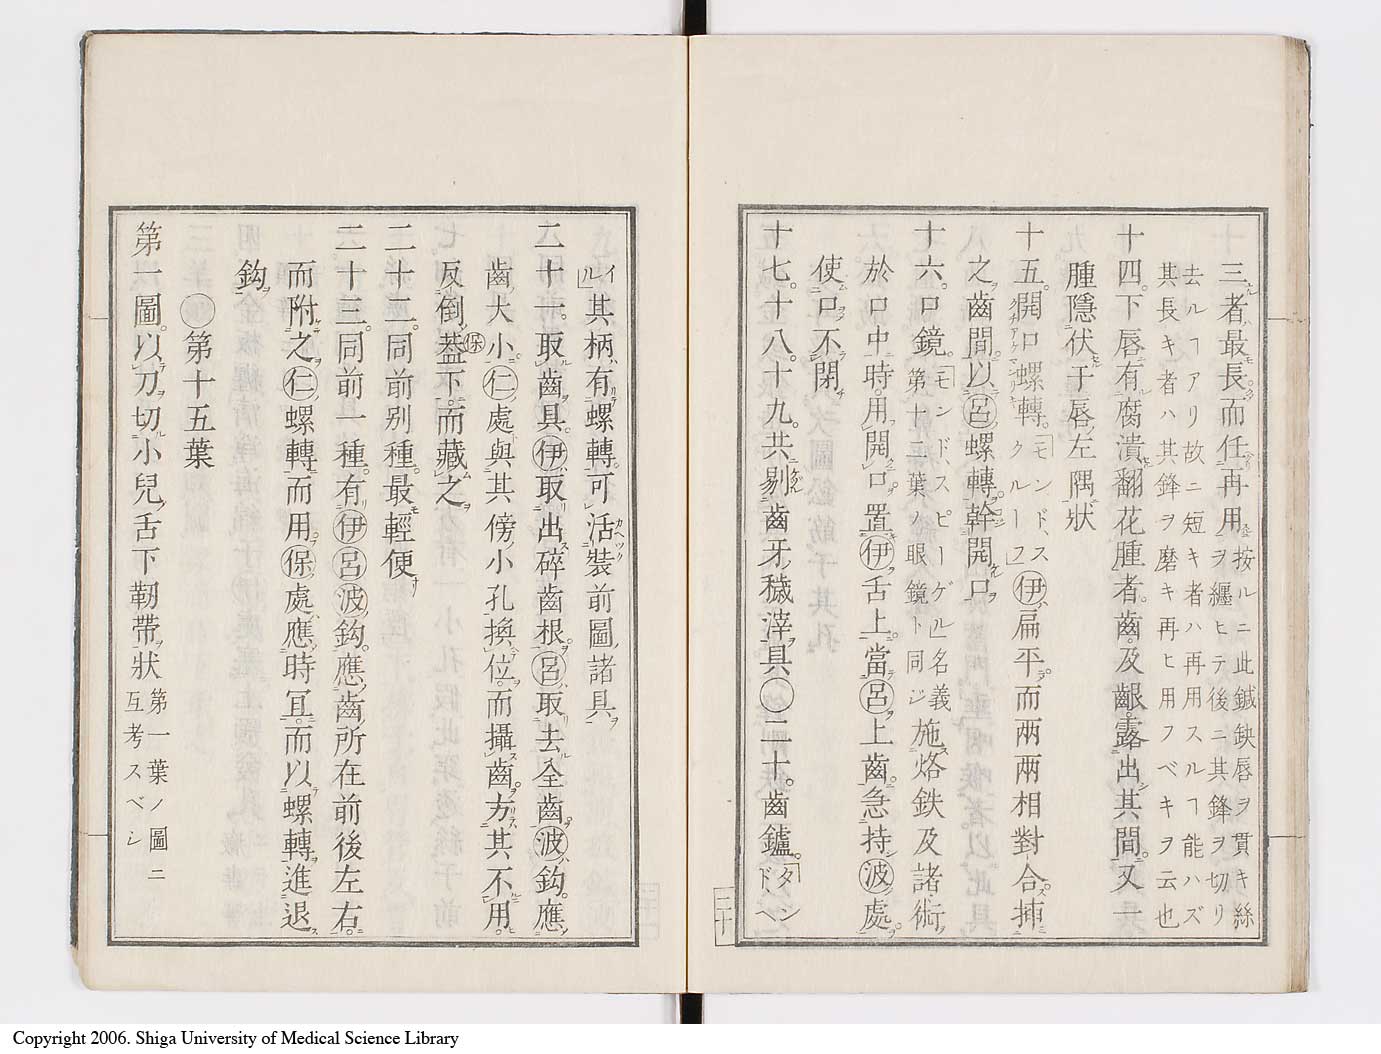 三者最長而任再用按ルニ此鍼鈌唇ヲ貫キ絲ヲ纒ヒテ後ニ其鋒ヲ切リ
去ルヿアリ故ニ短キ者ハ再用スルヿ能ハズ其長キ者ハ其鋒ヲ磨キ再ヒ用フベキヲ云也
十四。下唇有腐潰翻花腫者。齒及齦。露出其間。又一
腫隱伏于唇左隅狀
十五。開口螺轉。「モンドスクルーフ」㋑伊扁平而兩兩相對合。揷
之齒間。以呂螺轉幹開口
十六。口鏡。「モンドスピーゲル」名義第十二葉ノ眼鏡ト同ジ施烙鉄及諸術
於口中時。用開口。置伊舌上。當呂上齒。急持波處。
使口不閉
十七。十八。十九。共剔齒牙穢滓具〇二十。齒鑪。「タンドヘ
イル」其柄有螺轉。可活裝前圖諸具
二十一。取齒具。伊取出碎齒根。呂取去全齒。波鈎。應
齒大小。仁處與其傍小孔換位。而攝齒。方其不用。
反倒保蓋下。而藏之
二十二。同前別種。最輕便
二十三。同前一種。有伊呂波鈎。應齒所在前後左右。
而附之。仁螺轉。而用保處。應時宜。而以螺轉進退
鈎
〇第十五葉
第一圖。以刀切小兒舌下靭帶狀第一葉ノ圖ニ互考スベシ
二十
Copyright 2006. Shiga University of Medical Science Library